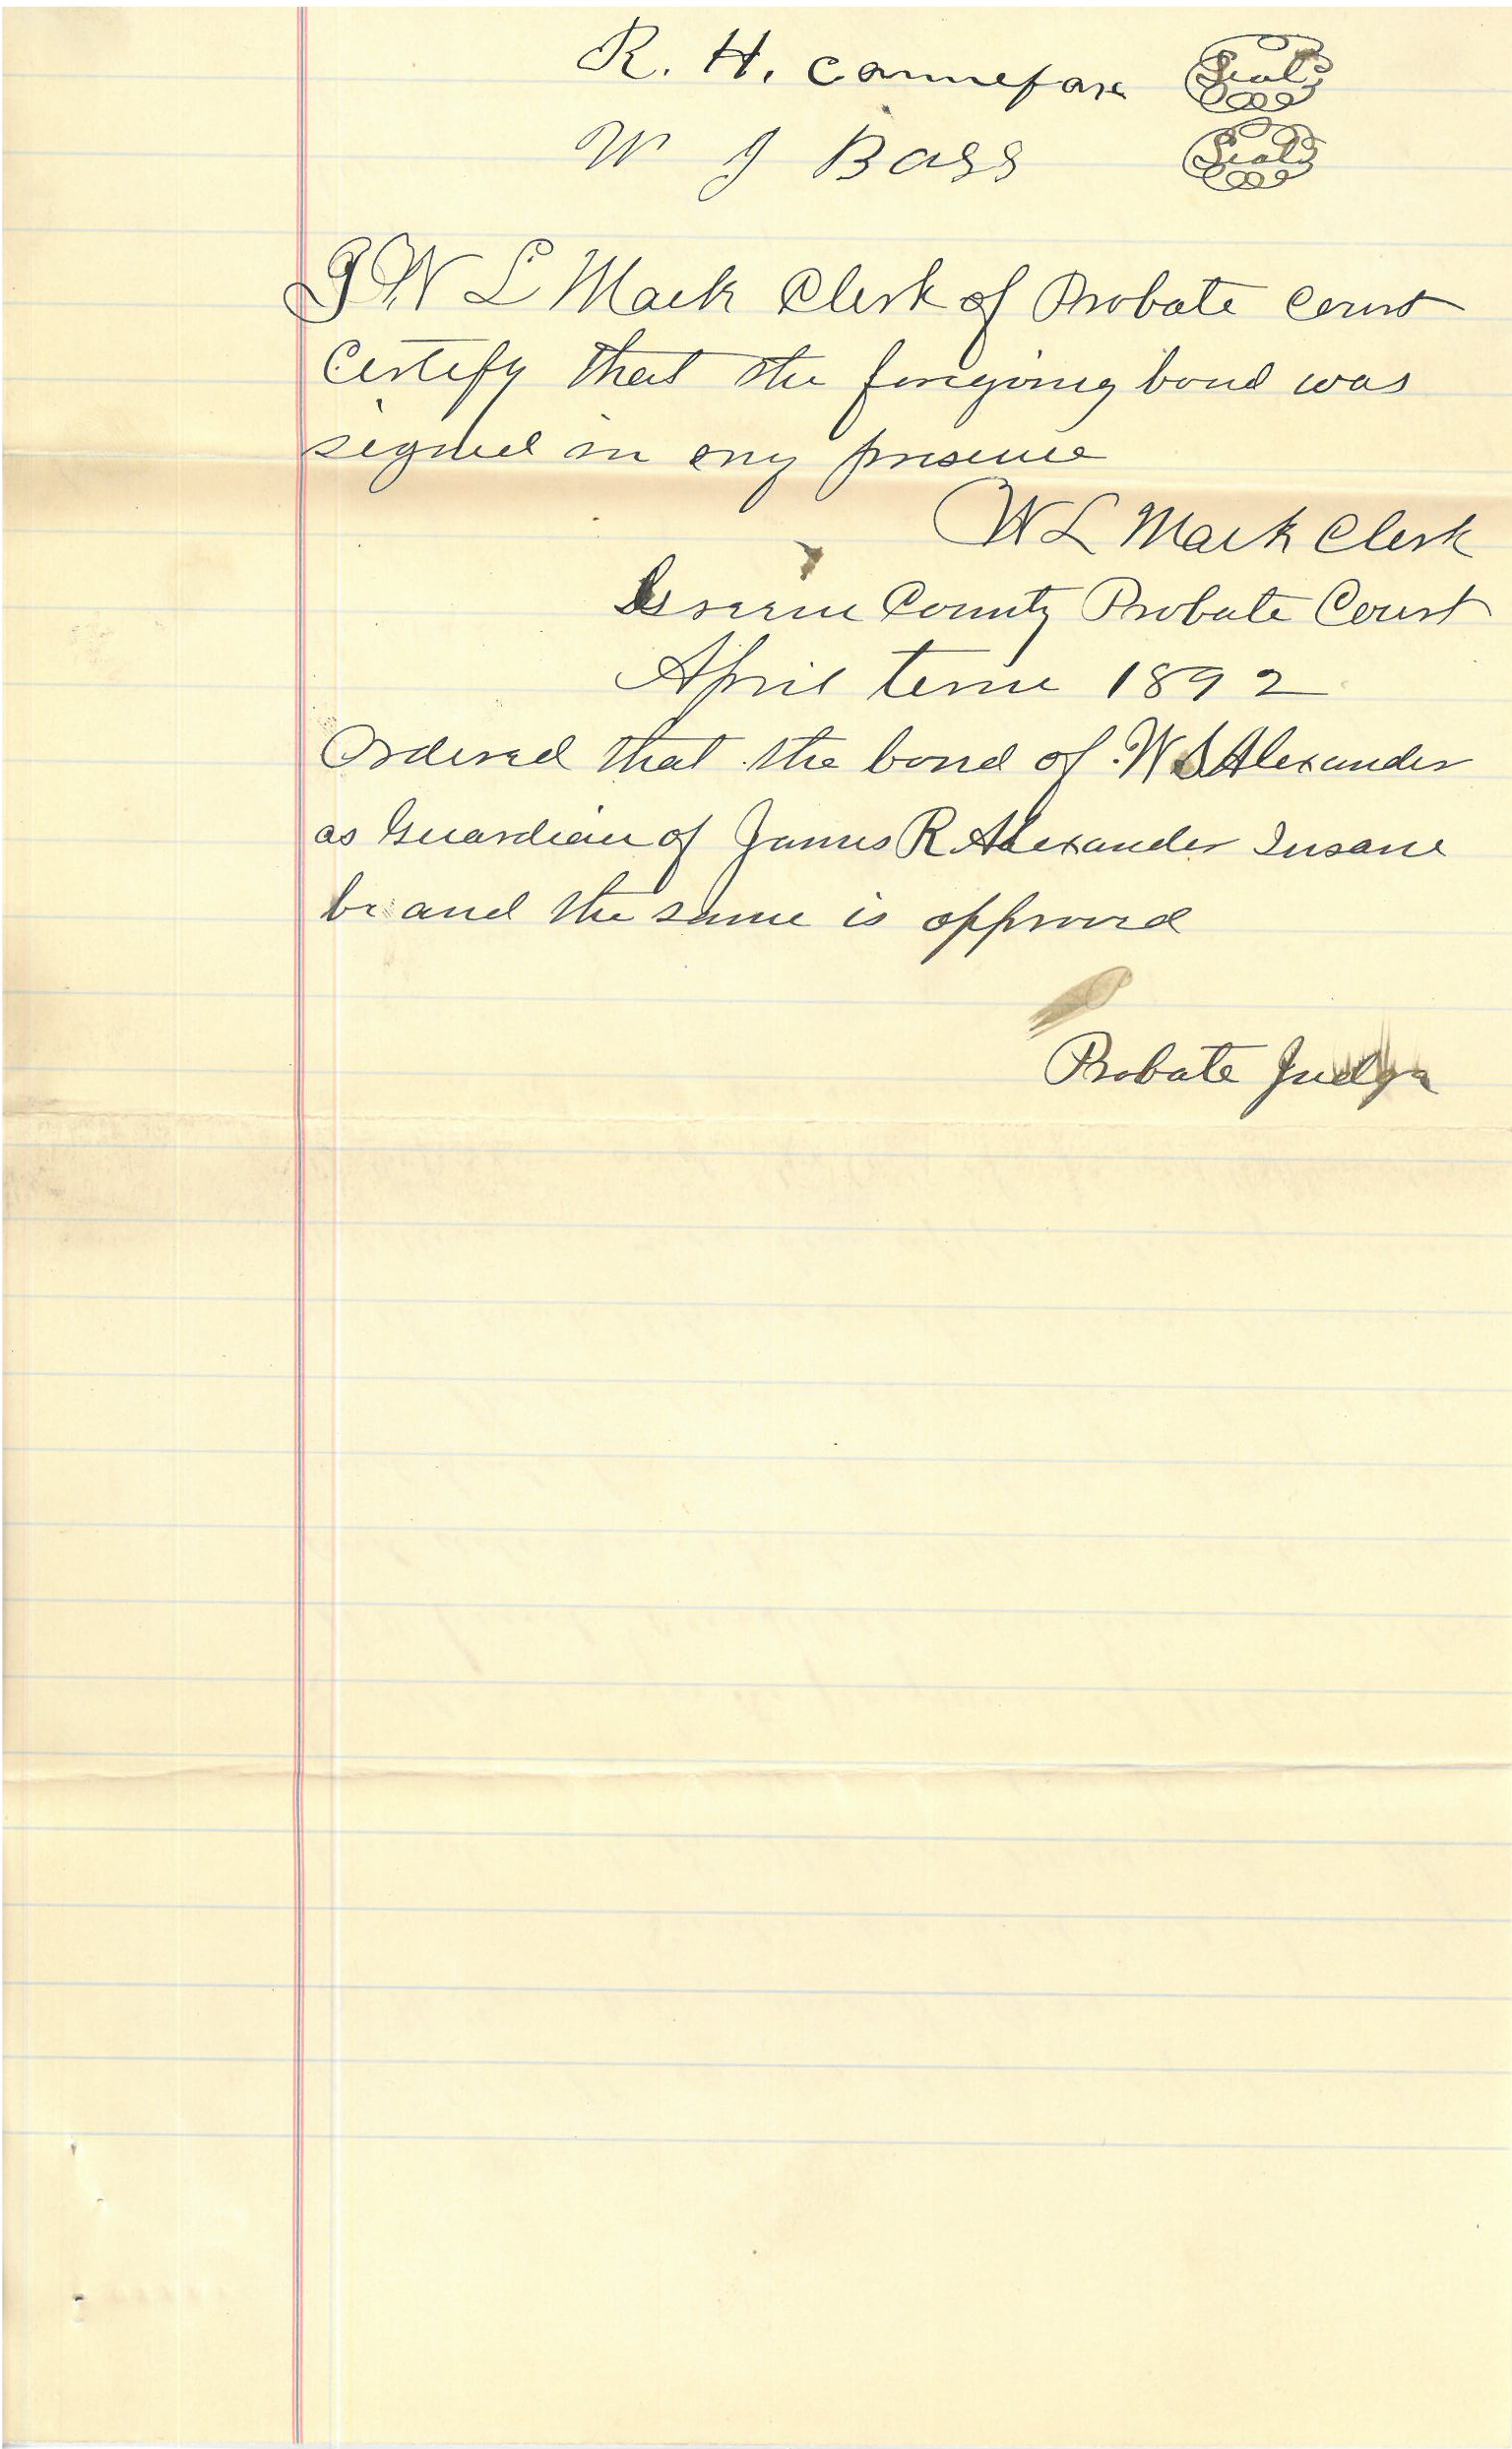 R. H. Cannefax Seal
W J Bass Seal
I W L Mack Clerk of Probate Court
Certify that the foregoing bond was
signed in my presence
W L Mack Clerk
Greene County Probate Court
April term 1892
Ordered that the bond of W S Alexander
as Guardian of James R Alexander Insane
be and the same is approved
Probate Judge